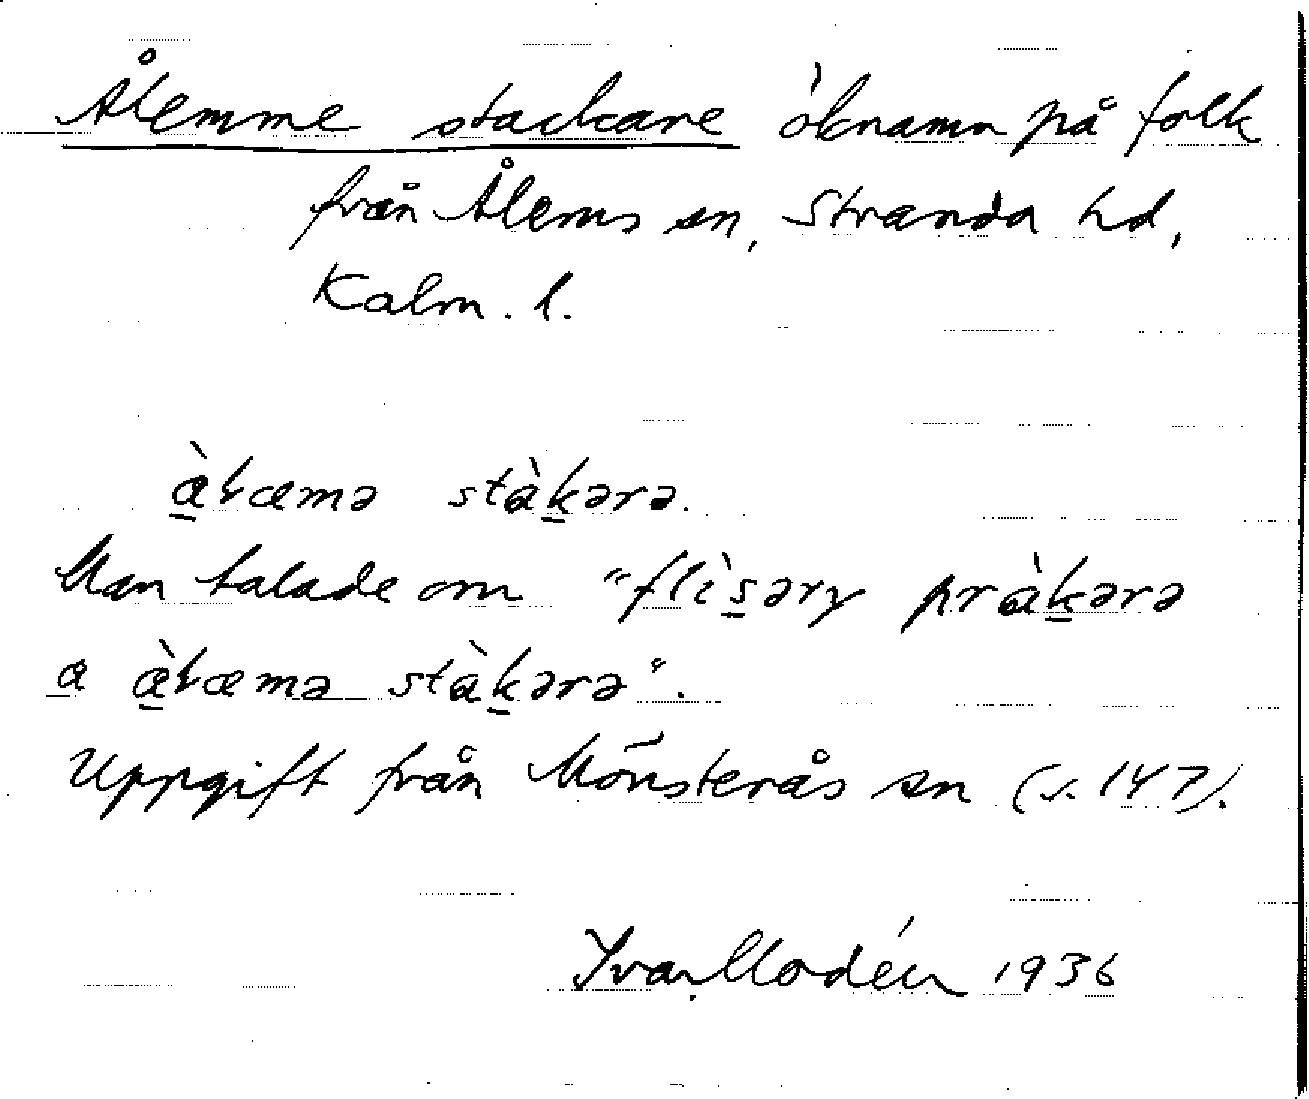 Ålemme stackare öknamn på folk
från Ålems sn, Stranda hd,
Kalm. l.
stàkərə.
Man talade om "flìsəry pràkərə
a stàkərə".
Uppgift från Mönsterås sn (s. 147).
Ivar Modéer 1936